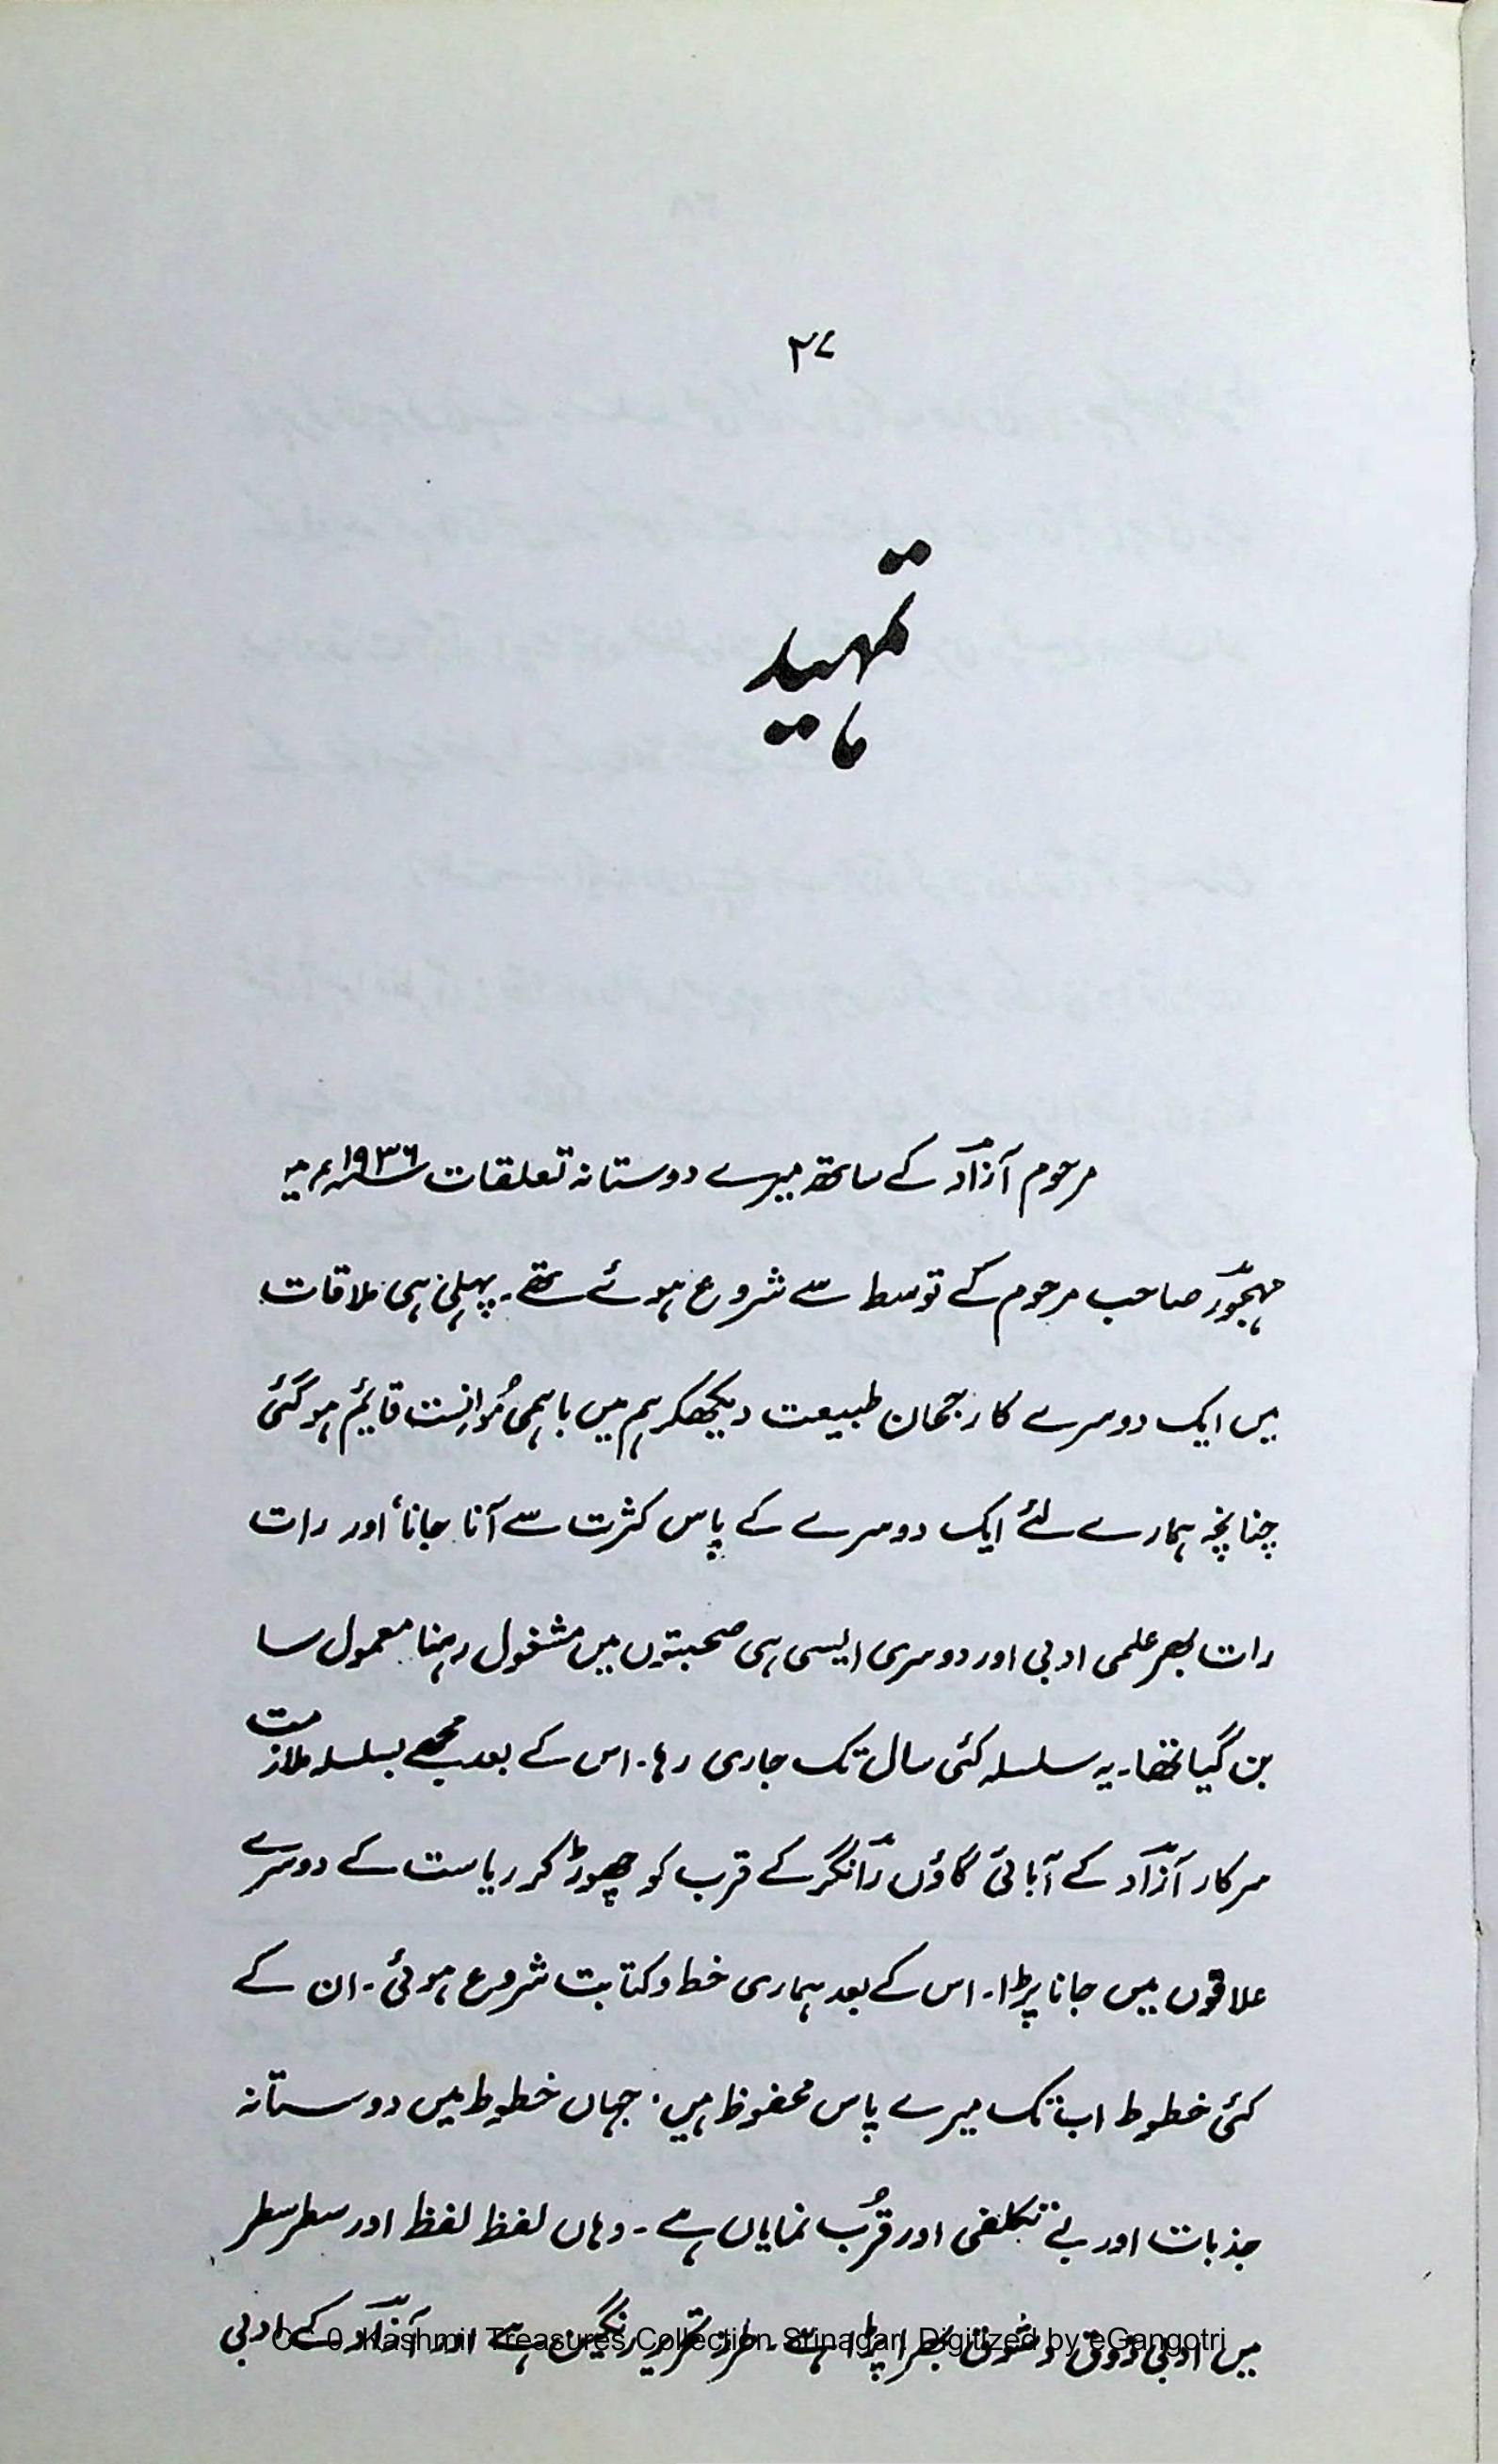 ۲۷
تمہید
مرحوم آزاد کے ساتھ میرے دوستانہ تعلقات ۱۹۳۶ء میں
مہجور صاحب مرحوم کے توسط سے شروع ہوئے تھے۔ پہلی ہی ملاقات
میں ایک دوسرے کا رجحان طبیعت دیکھکر ہم میں باہمی مُوانِست قائم ہو گئی
چنانچہ ہمارے لئے ایک دوسرے کے پاس کثرت سے آنا جانا، اور رات
رات بھر علمی ادبی اور دوسری ایسی ہی صحبتوں میں مشغول رہنا معمول سا
بن گیا تھا۔ یہ سلسلہ کئی سال تک جاری رہا۔ اس کے بعد مجھے بسلسلہ ملازمت
سرکار آزاد کے آبائی گاؤں رانگر کے قرب کو چھوڑ کر ریاست کے دوسرے
علاقوں میں جانا پڑا۔ اس کے بعد ہماری خط و کتابت شروع ہوئی۔ ان کے
کئی خطوط اب تک میرے پاس محفوظ ہیں۔ جہاں خطوط میں دوستانہ
جذبات اور بے تکلفی اور قُرب نمایاں ہے ۔ وہاں لفظ لفظ اور سطر سطر
میں ادبی ذوق و شوق بھرا پڑا ہے۔ طرز تحریر رنگین ہے اور آزاد کے ادبی
CC-0. Kashmir Treasures Collection Srinagar. Digitized by eGangotri